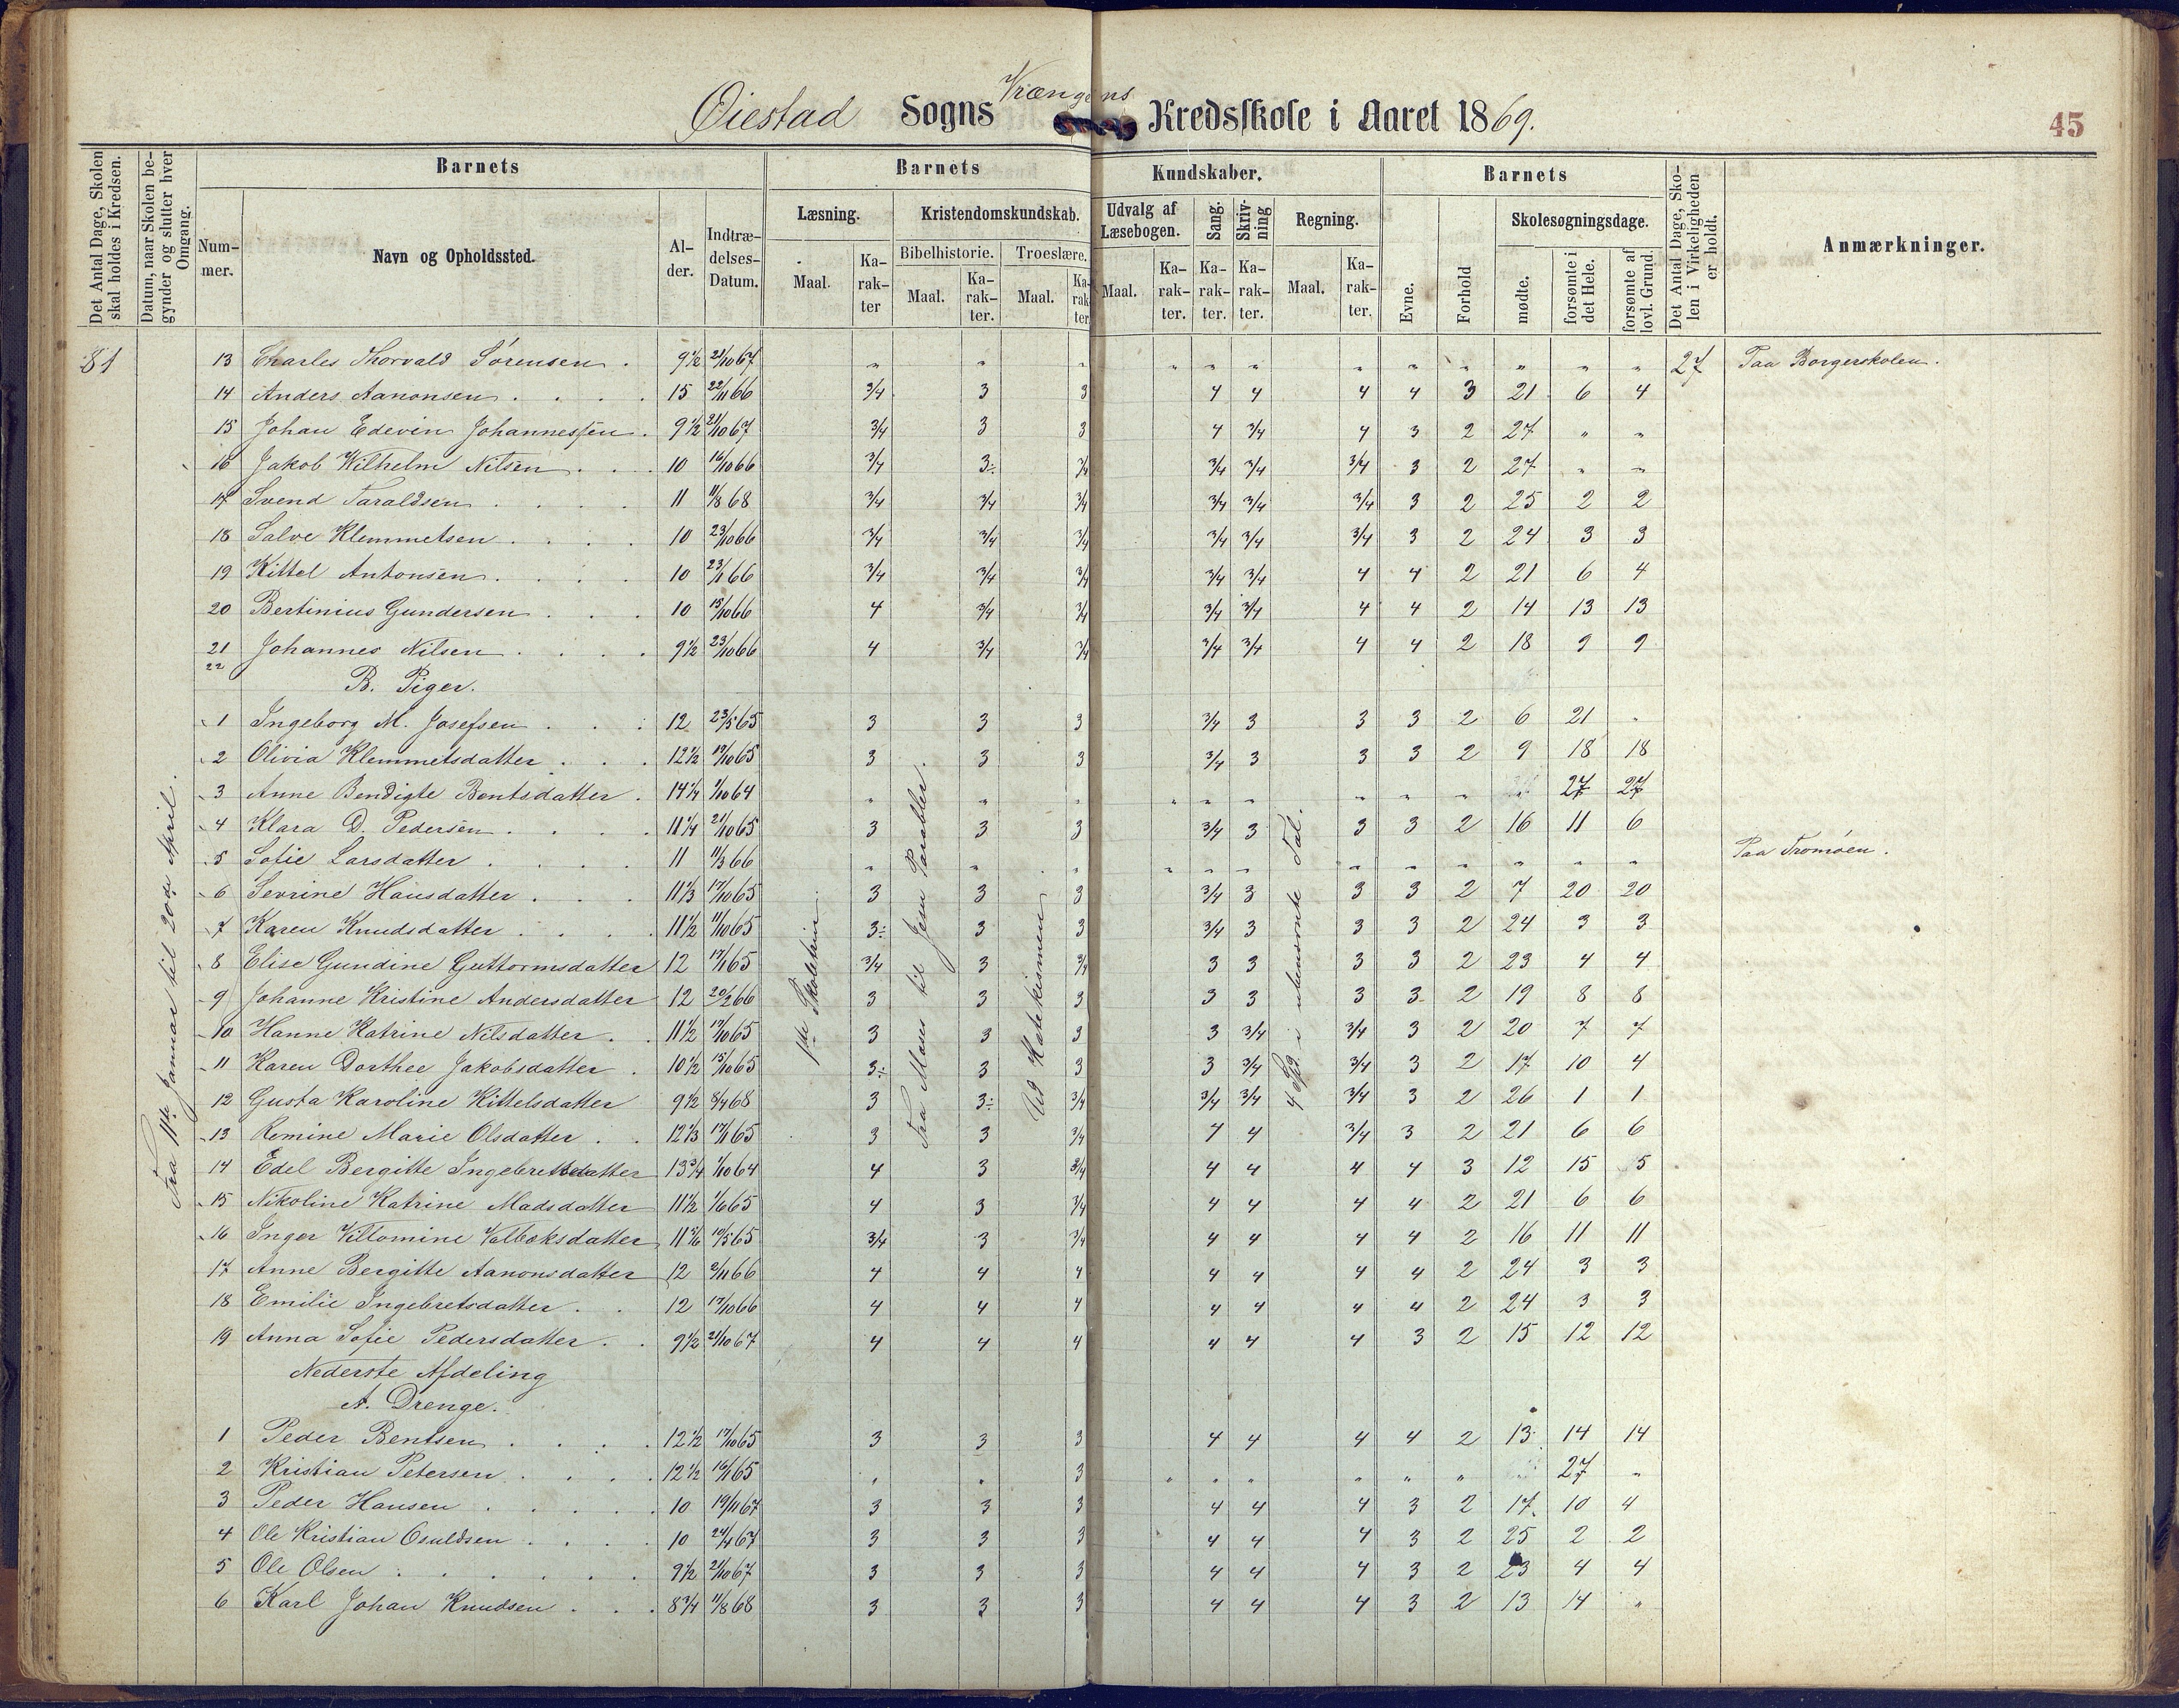 Øiestad Sogns Vrængens Kredsskole i Aaret 1869.
45
Det Antal Dage, Skolen skal holdes i Kredsen.
Datum, naar Skolen begynder og slutter hver Omgang.
Barnets
Nummer.
Navn og Opholdssted.
Alder.
Indtrædelses-Datum.
Barnets Kundskaber.
Læsning.
Maal.
Karakter
Kristendomskundskab.
Bibelhistorie.
Maal.
Karakter.
Troeslære.
Maal.
Karakter.
Udvalg af Læsebogen.
Maal.
Karakter.
Sang.
Karakter.
Skrivning
Karakter.
Regning.
Maal.
Karakter.
Barnets
Evne.
Forhold
Skolesøgningsdage.
mødte.
forsømte i det Hele.
forsømte af lovl. Grund.
Det Antal Dage, Skolen i Virkeligheden er holdt.
Anmærkninger.
81
Fra 11te Januar til 20de April.
1ste Skoletrin.
Fra Moses til Jesu Parabler.
Ud Katekismen
4 Spd. i ubenævnte Tal.
13 Charles Thorvald Sørensen . 9 1/2 21/10 67 " " " " " " " " " " " " 27 Paa Borgerskolen.
14 Anders Aanonsen . . . . 15 22/11 66 3/4 3 3 4 4 4 4 3 21 6 4
15 Johan Edevin Johannessen . 9 1/2 21/10 67 3/4 3 3 4 3/4 4 3 2 27 " "
16 Jakob Wilhelm Nilsen . . . 10 16/10 66 3/4 3÷ 3/4 3/4 3/4 3/4 3 2 27 " "
17 Svend Taraldsen . . . . 11 11/8 68 3/4 3/4 3/4 3/4 3/4 3/4 3 2 25 2 2
18 Salve Klemmetsen . . . . 10 23/10 66 3/4 3/4 3/4 3/4 3/4 3/4 3 2 24 3 3
19 Kittel Antonsen . . . . 10 23/1 66 3/4 3/4 3/4 3/4 3/4 4 4 2 21 6 4
20 Bertinius Gundersen . . . 10 15/10 66 4 3/4 3/4 3/4 3/4 4 4 2 14 13 13
21 Johannes Nilsen . . . . 9 1/2 23/10 66 4 3/4 3/4 3/4 3/4 4 4 2 18 9 9
22
B. Piger.
1 Ingeborg M. Josefsen . . . 12 23/5 65 3 3 3 3/4 3 3 3 2 6 21 "
2 Olivia Klemmetsdatter . . . 12 1/2 19/10 65 3 3 3 3/4 3 3 3 2 9 18 18
3 Anne Bendigte Bentsdatter . 14 1/4 1/10 64 " " " " " " " " " 27 27
4 Klara D. Pedersen . . . . 11 1/4 21/10 65 3 3 3 3/4 3 3 3 2 16 11 6
5 Sofie Larsdatter . . . . 11 11/3 66 " " " " " " " " " " " " Paa Tromøen.
6 Sevrine Hansdatter . . . 11 1/3 17/10 65 3 3 3 3/4 3 3 3 2 7 20 20
7 Karen Knudsdatter . . . . 11 1/2 11/10 65 3÷ 3 3 3/4 3 3 3 2 24 3 3
8 Elise Gundine Guttormsdatter 12 17/1 65 3/4 3 3/4 3 3 3 3 2 23 4 4
9 Johanne Kristine Andersdatter 12 20/2 66 3 3 3 3 3 3 3 2 19 8 8
10 Hanne Katrine Nilsdatter . . 11 1/2 17/10 65 3 3 3 3 3/4 3/4 3 2 20 7 7
11 Karen Dorthee Jakobsdatter . 10 1/2 15/10 65 3÷ 3 3 3 3/4 3/4 3 2 17 10 4
12 Gusta Karoline Kittelsdatter 9 1/2 8/4 68 3 3÷ 3/4 3/4 3/4 3/4 3 2 26 1 1
13 Remine Marie Olsdatter . . 12 1/3 17/1 65 3 3 3/4 4 4 3/4 3 2 21 6 6
14 Edel Bergitte Ingebretsdatter 13 3/4 1/10 64 4 3 3/4 4 4 4 4 3 12 15 5
15 Nikoline Katrine Madsdatter 11 1/2 1/6 65 4 3 3/4 4 4 4 4 2 21 6 6
16 Inger Villomine Valboksdatter 11 5/6 10/5 65 3/4 3 3/4 4 4 4 4 2 16 11 11
17 Anne Bergitte Aanonsdatter 12 2/11 66 4 4 4 4 4 4 4 2 24 3 3
18 Emilie Ingebretsdatter . . 12 17/10 66 4 4 4 4 4 4 4 2 24 3 3
19 Anna Sofie Pedersdatter . . 9 1/2 21/10 67 4 4 4 4 4 4 3 2 15 12 12
Nederste Afdeling
A. Drenge.
1 Peder Bentsen . . . . 12 1/2 17/10 65 3 3 3 4 4 4 4 2 13 14 14
2 Kristian Petersen . . . . 12 1/2 16/1 65 " " 3 " " " " " " 27 "
3 Peder Hansen . . . . . 10 19/11 67 3 3 3 4 4 4 3 2 17 10 4
4 Ole Kristian Osuldsen . . . 10 24/4 67 3 3 3 4 4 4 3 2 25 2 2
5 Ole Olsen . . . . . . 9 1/2 21/10 67 3 3 3 4 4 4 3 2 23 4 4
6 Karl Johan Knudsen . . . 8 3/4 11/8 68 3 3 3 4 4 4 3 2 13 14 "